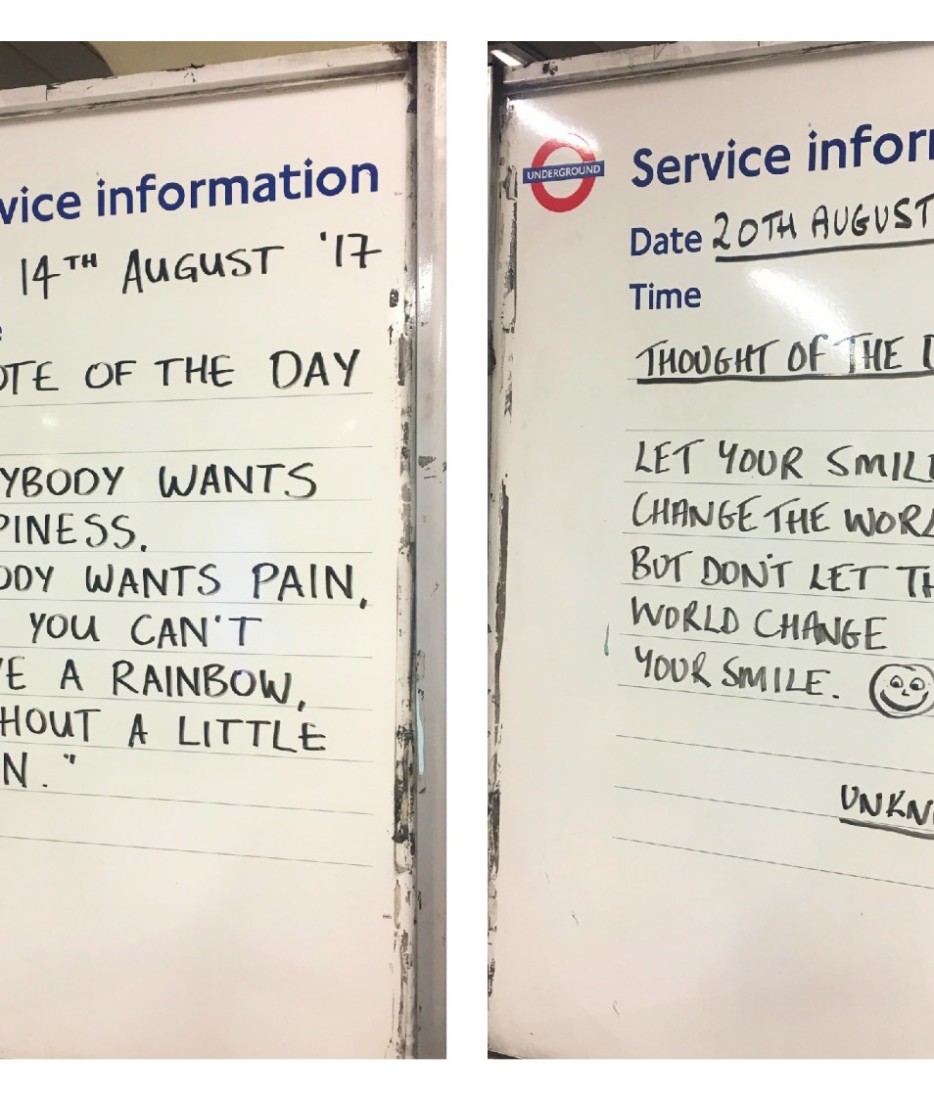 vice information
14TH AUGUST '17
OTE OF THE DAY
YBODY WANTS
PINESS.
ODY WANTS PAIN,
YOU CAN'T
E A RAINBOW,
HOUT A LITTLE
N."
UNDERGROUND
Service infor
Date 20TH AUGUST
Time
THOUGHT OF THE D
LET YOUR SMILE
CHANGE THE WORL
BUT DON'T LET TH
WORLD CHANGE
YOUR SMILE.
UNKN